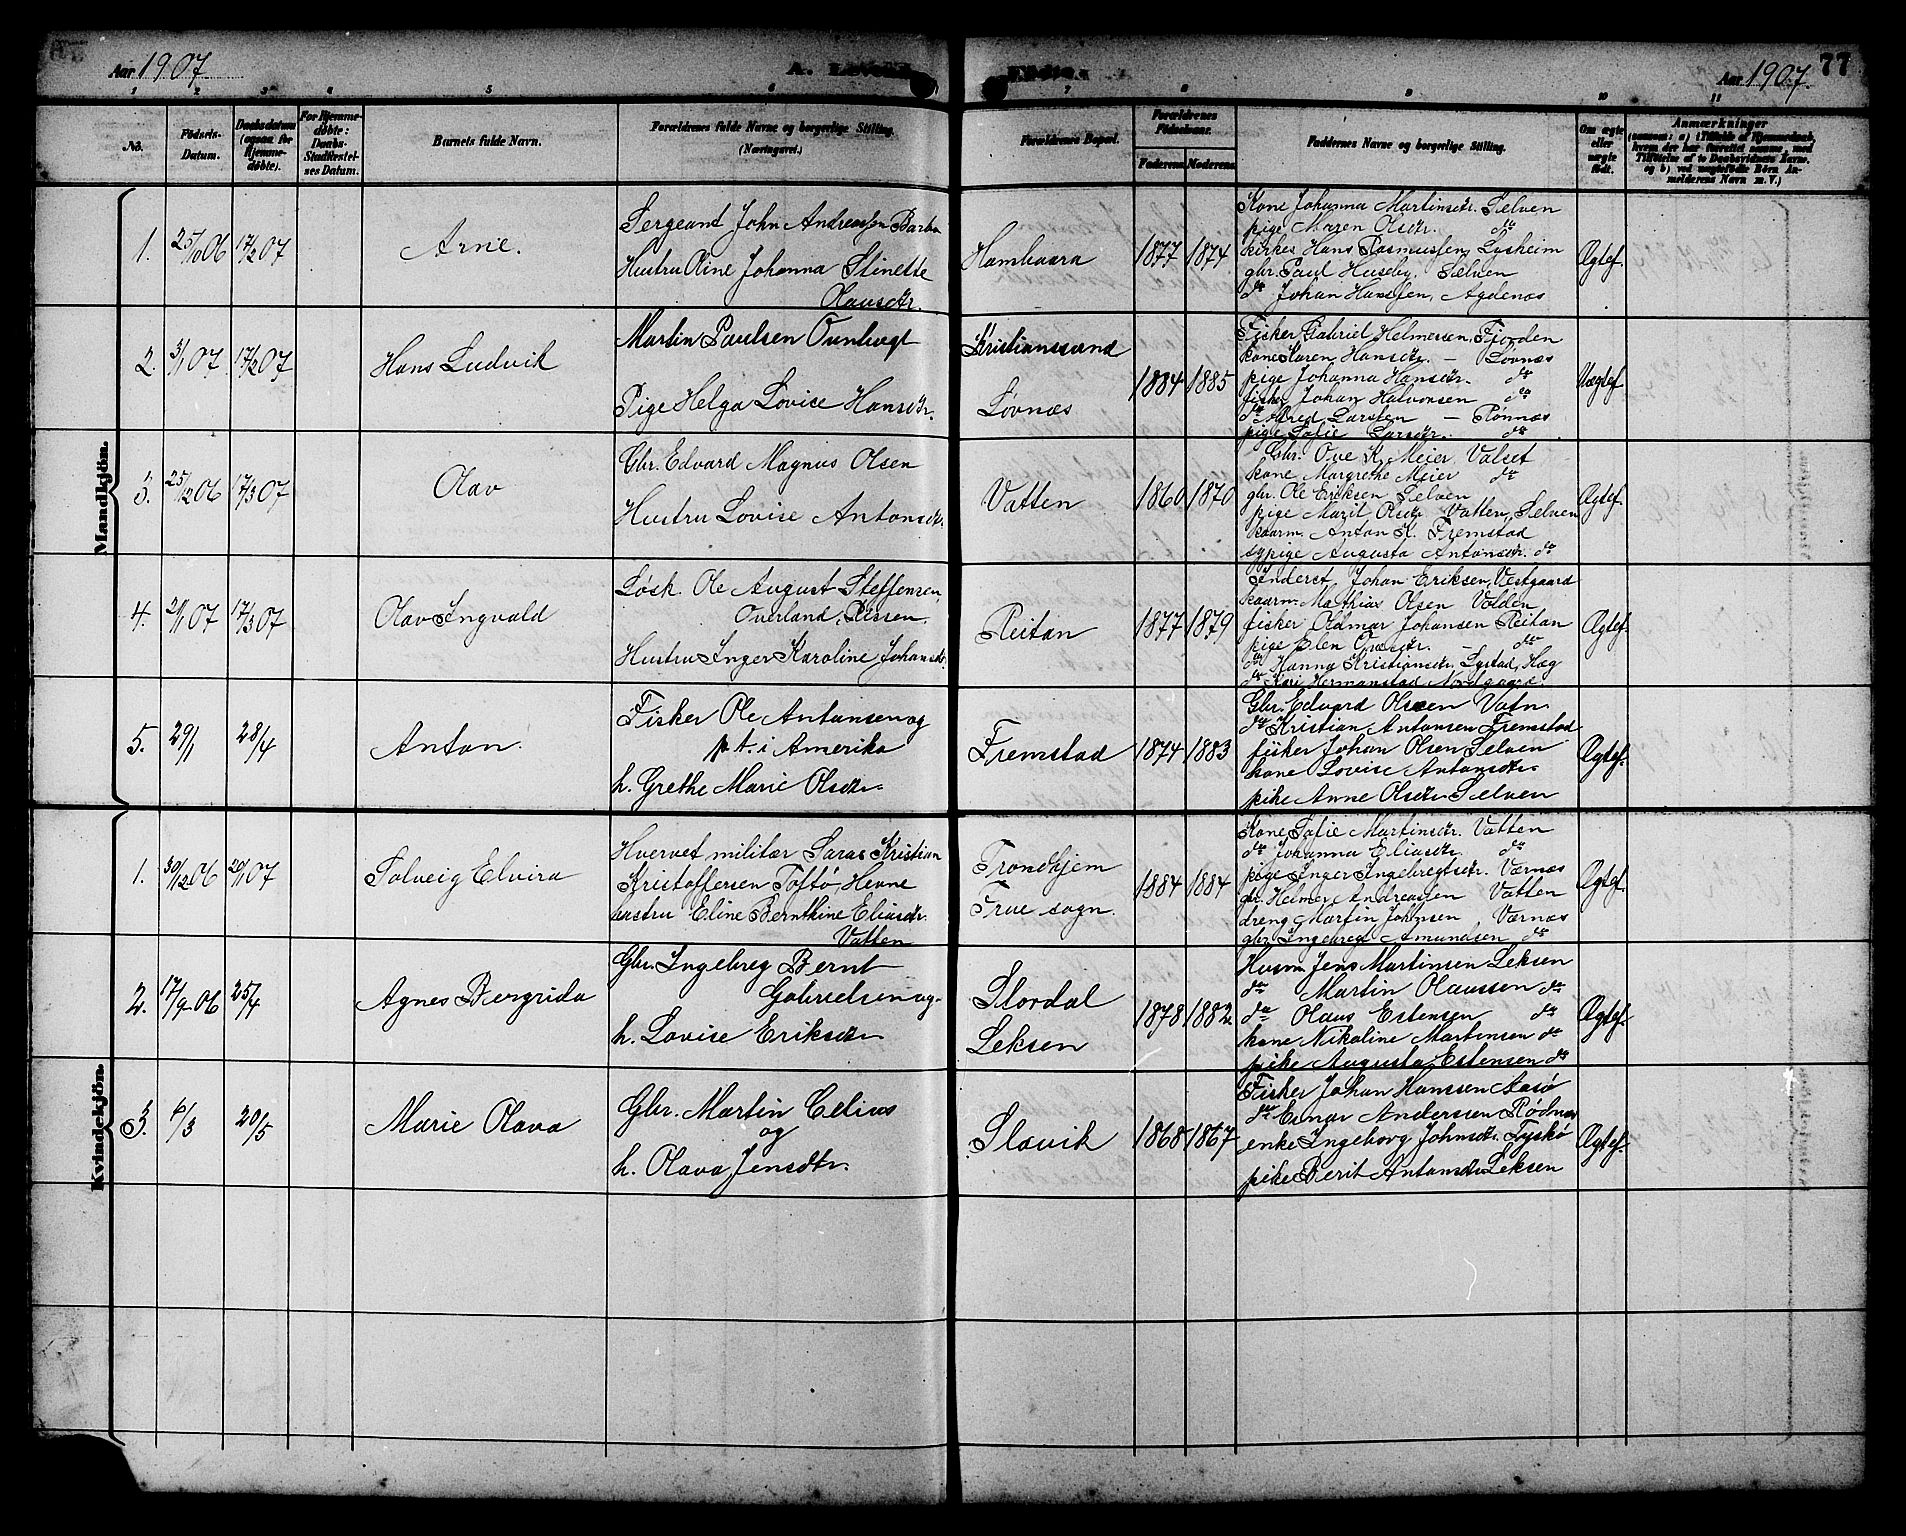 Aar 1907.
A. Levende
Fødte.
Aar 1907.
77
1 2 3 4 5 6 7 8 9 10 11
No.
Fødsels-Datum.
Daabsdatum (ogsaa for Hjemme-døbte).
For Hjemme-døbte: Daabs-Stadfæstelses Datum.
Barnets fulde Navn.
Forældrenes fulde Navne og borgerlige Stilling. (Næringsvei.)
Forældrenes Bopæl.
Forældrenes Fødselsaar.
Faderens Moderens
Faddernes Navne og borgerlige Stilling.
Om ægte eller uægte født.
Anmærkninger
Mandkjön.
1. 25/10 06 17/2 07
Arne.
Sergeant John Andreassen Barbo
Hustru Oline Johanna Stinette
Olausdtr.
Hambaara
1877 1874
Kone Johanna Martinsdtr. Selven
pige Maren Olsdtr. do
kirkes. Hans Rasmussen, Lysheim
gbr. Paul Huseby, Selven
do Johan Hansen, Agdenæs
Ægtef.
2. 3/1 07 17/2 07
Hans Ludvik
Martin Paulsen
Pige Helga Lovise Hansdtr.
Kristianssund
Lovnæs
1884 1885
Fisker Gabriel Helmersen, Fjorden
kone Karen Hansdtr. – Lovnæs
pige Johanna Hansdtr. do
fisker Johan Halvorsen do
do Alfred Larssen – Rønnæs
pige Sofie Larsdtr. do
Uægtef.
3. 25/12 06 17/3 07
Olav
Gbr. Edvard Magnus Olsen
Hustru Lovise Antonsdtr.
Vatten
1860 1870
Gbr. Ove K. Meier Valset
kone Margrethe Meier do
gbr. Ole Eriksen Selven
pige Marit Olsdtr. Vatten, Selven
kaarm. Anton K. Fremstad
sypige Augusta Antonsdtr. do
Ægtef.
4. 21/1 07 17/3 07
Olav Ingvald
Løsk. Ole August Steffensen,
Overland, Rissen.
Hustru Inger Karoline Johansdtr.
Reitan
1877 1879
Inderst Johan Eriksen, Vestgaard
kaarm. Mathias Olsen Volden
fisker Oldmar Johansen Reitan
pige Elen – do
do Hanna Kristiansdtr. Lystad,
do Kari Hermanstad Nordgaard
Ægtef.
5. 29/1 28/4
Anton.
Fisker Ole Antonsen og
p.t. i Amerika
h. Grethe Marie Olsdtr.
Fremstad
1874 1883
Gbr. Edvard Olsen Vatn.
do Kristian Antonsen Fremstad
fisker Johan Olsen Selven
kone Lovise Antonsdtr.
pike Anne Olsdtr. Selven
Ægtef.
Kvindekjön.
1. 30/12 06 20/1 07
Solveig Elvira
Hvervet militær Kristian
Kristoffersen Toftø, Hevne
hustru Eline Bernthine Eliasdtr.
Vatten
Trondhjem
Frue sogn.
1884 1884
Kone Sofie Martinsdtr. Vatten
do Johanna Eliasdtr. do
pige Inger Ingebregtsdtr. Værnæs
gbr. Helmer Andreassen Vatten
dreng Martin Johnsen, Værnæs
gbr. Ingebregt Amundsen do
Ægtef.
2. 17/9 06 25/4
Agnes Bergrida
Gbr. Ingebreg Bernt
Gabrielsen og
h. Lovise Eriksdtr.
Slordal
Leksen
1878 1882
Husm. Jens Martinsen Leksen
do Martin Olaussen do
do Olaus Estensen do
kone Nikoline Martensen do
pike Augusta Estensen do
Ægtef.
3. 6/3 20/5
Marie Olava
Gbr. Martin Celius
og
h. Olava Jensdtr.
Slavik
1868 1867
Fisker Johan Hanssen Aasø
do Einar Anderssen Rødnæs
enke Ingeborg Johnsdtr. Tyskø
pike Berit Antonsdtr. Leksen
Ægtef.